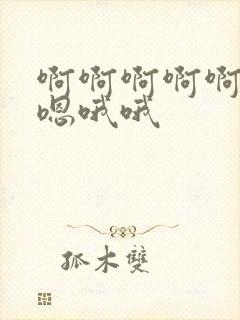 啊啊啊啊啊
嗯哦哦
孤木雙